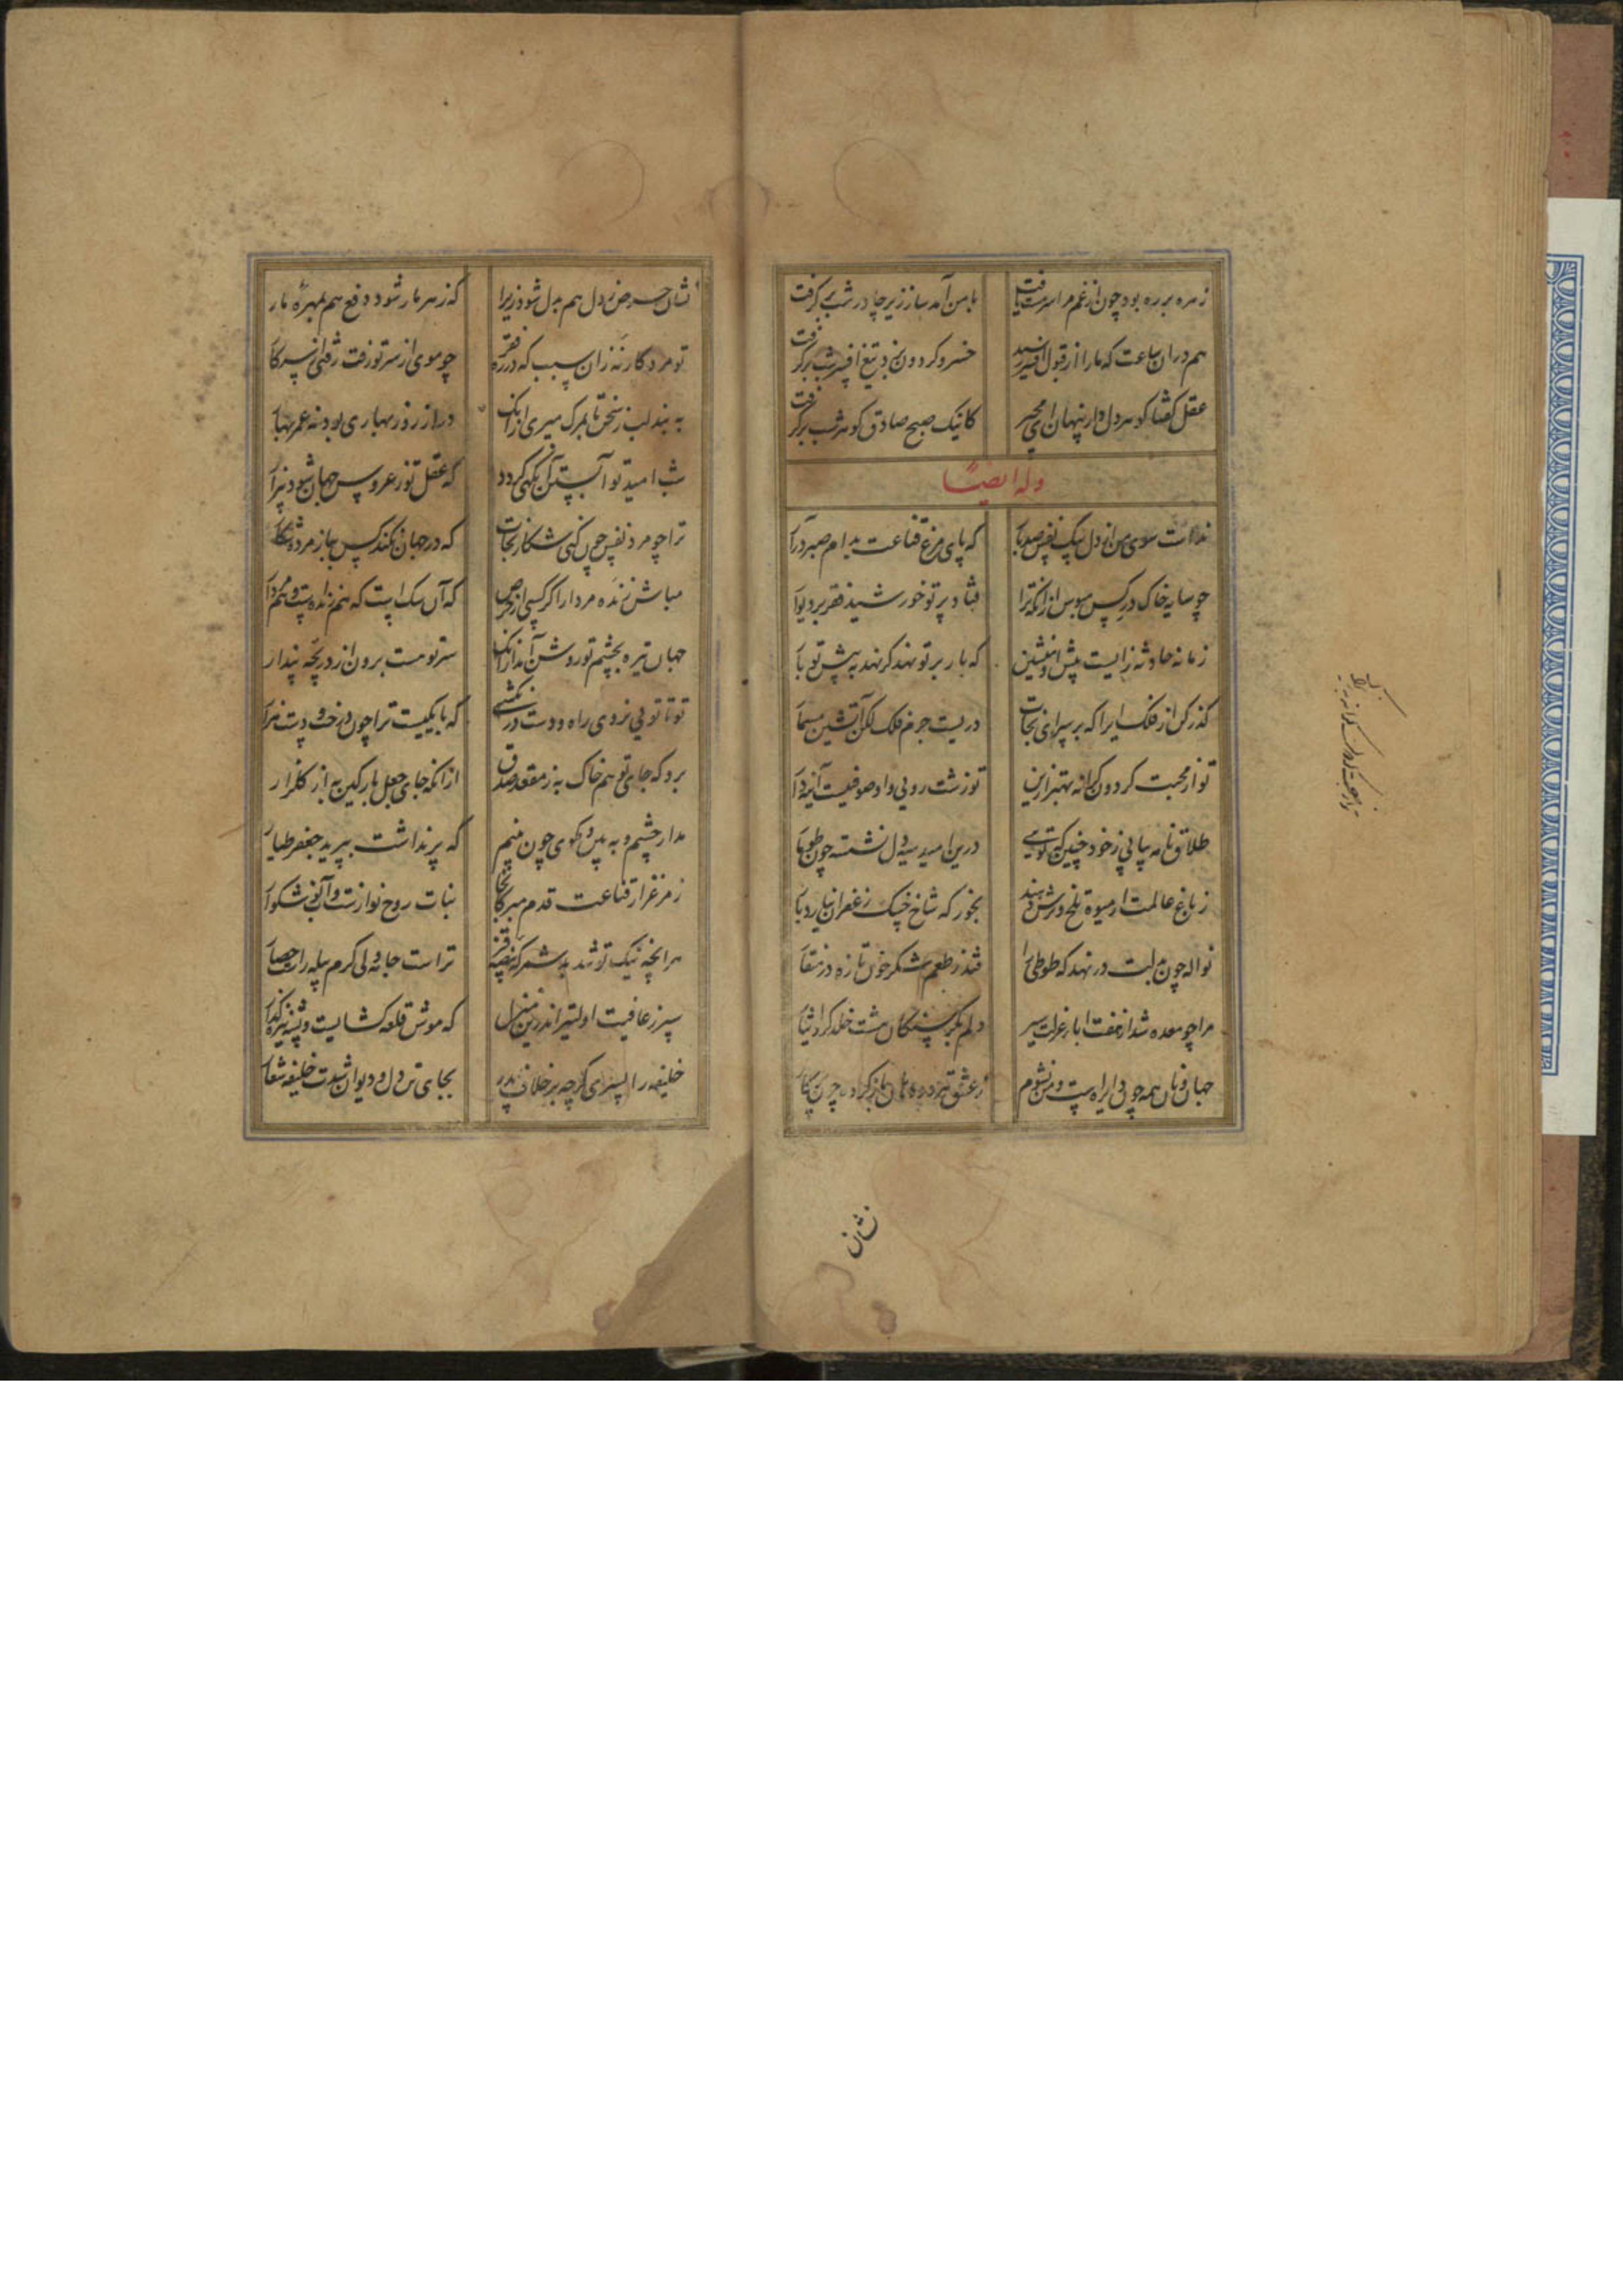 زهره بر ره بود چون از غم مرا سرمست یافت
با من آمد ساز زیر چادر شب بر گرفت
هم در آن ساعت که ما را از قبول افسر رسید
خسرو گردون بزد تیغ افسر شب بر گرفت
عقل گفتا گوهر دل دار پنهان ای مجیر
کانیک صبح صادق گوهر شب بر گرفت
وله ایضا
نداست سوی من از دل بیک نفس صد بار
که پای مرغ قناعت بدام صبر در آر
چو سایه خاک در کس مبوس از آنکه ترا
فتاد پرتو خورشید فقر بر دیوار
زمانه حادثه زایست پیش او منشین
که بار بر تو نهد گر نهد به پیش تو بار
گذر کن از فلک ایرا که بر سرای نجات
دریست جرم فلک لکن آتشین مسمار
تو از محبت گردون کرانه به بهتر ازین
تو زشت رویی و او صوفیست آینه دار
طلاق نامه بیانی ز خود چنین که تویی
درین امید سیه دل نشسته چون طومار
ز باغ عالمت ار میوه تلخ و ترش دهند
بخور که شاخ خسک زعفران نیارد بار
نواله چون بلبت در نهد که طوطی را
فتد ز طعم شکر خون تازه در منقار
مرا چو معده شد از نعمت ابا ز عزلت سیر
دلم نکرد سکان هشت خلد کرد نثار
جهان و نان همه چون دایره است و من نشوم
ز عشق
تو از محبت گردون کرانه به
نشان
نشان حرص ز دل هم بدل شود زیرا
که زهر مار شود دفع هم بمهره مار
تو مرد کار نه زان سبب که در ره فقر
چو موی از سر تو زفت رفتی از سر کار
به بند لب ز سخن تا بمرگ میری از آنک
دراز زور بهاری بود نه عمر بهار
شب امید تو آبستن آن گهی گردد
که عقل تو ز عروس جهان شود بیزار
ترا چو مرد نفس چون کنی شکار نجات
که در جهان نکند کس بباز مرده شکار
مباش زنده مردار اگر کسی از حرص
که آن سگ است که هم زنده است و هم مردار
جهان تیره بچشم تو روشن آمد از آنک
سر تو هست برون از دریچه پندار
تو تا تویی نروی راه و دوست در نکشی
که با یکیست ترا چون درخت و دست هزار
برو که جای تو هم خاک به ز مقعد صدق
از آنکه جای جعل پارگین به از گلزار
مدار چشم و به پس و گوی چون منم
که پر نداشت بپرید جعفر طیار
ز مرغزار قناعت قدم مبر کانجا
نبات روح نوازست و آب نوش گوار
هر آنچه نیک تو شد بد شمر که
تراست جامه ولی کرم پیله راست حصار
سپر ز عافیت اولیتر اندرین منزل
که موش قلعه گشایست و پشه نیزه گذار
خلیفه را پسری گرچه بر خلاف پدر
بجای تن دل و دیوان شدت خلیفه شعار